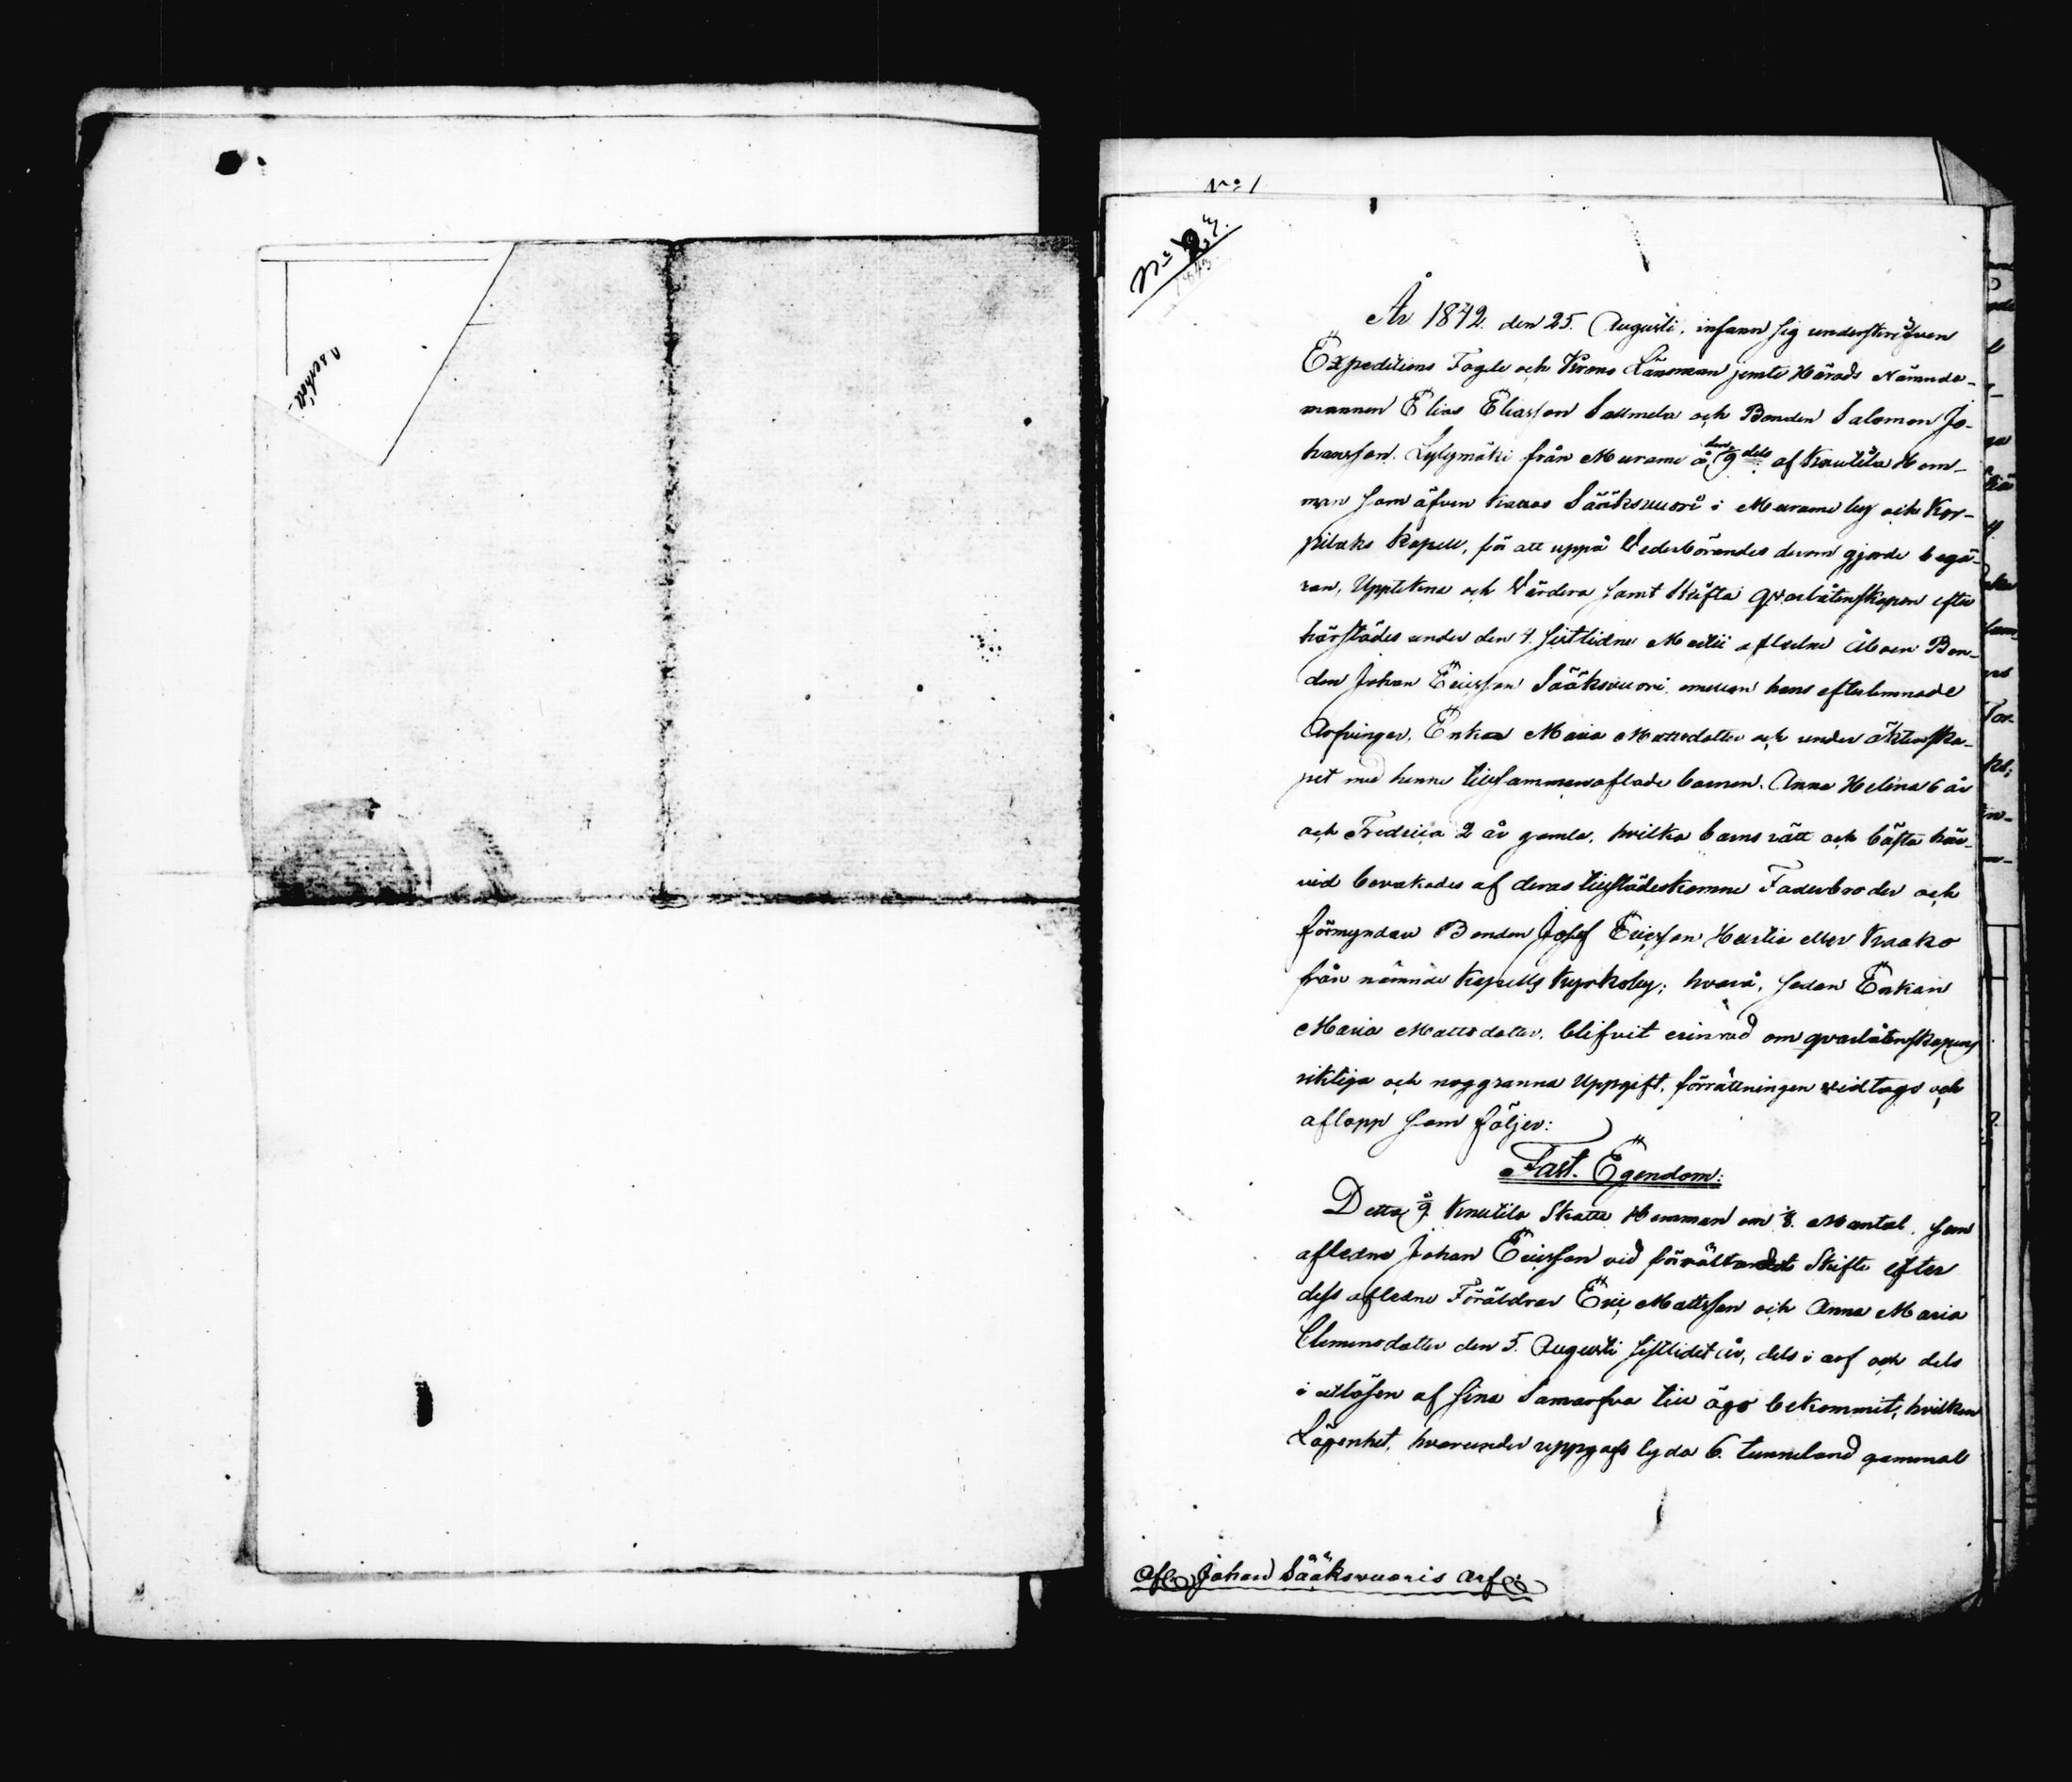 No 1
År 1842 den 25. Augusti, infann sig underskrifven
Expeditions Fogde och Krono Länsman jemte Härads Nämnde-
mannen Elias Eliasson Salmela och Bonden Salomon Jo-
hansson Lylymäki från Murame å den /9 dels af Knutila Hem-
man som äfven kallas Sääksvuori i Murame by och Kor-
pilaks Kapell, för att uppå Vederbörandes derom gjorde begä-
ran, Uppteckna och Värdera samt Skifta qvarlåtenskapen efter
härstädes under den 4. sistlidne Maii aflidne Åboen Bon-
den Johan Ericsson Sääksvuori, emellan hans efterlemnade
Arfvingar, Enkan Maria Mattsdotter och under äktenska-
pet med henne tillsammansaflade barnen, Anna Helena 6 år
och Fredrica 2 år gamla, hvilka barns rätt och bästa här-
vid bevakades af deras tillstädeskomne Faderbroder och
förmyndare Bonden Josef Ericsson Heitia eller Knako
från nämnde Kapells Kyrkoby; hvarå, sedan Enkan
Maria Mattsdotter, blifvit erinrad om qvarlåtenskapens
riktiga och noggranna Uppgift, förrättningen vidtogs och
aflopp som följer:
Fast Egendom:
Detta /9 Knutila Skatte Hemman om /8 Mantal, som
aflidne Johan Ericsson vid förrättandet Skifte efter
dess aflidne Föräldrar Eric Mattsson och Anna Maria
Clemensdotter den 5. Augusti sistlidet år, dels i arf och dels
i utlösen af sina Samarfva till ägo bekommit, hvilken
Lägenhet, hvarunder uppgafs lyda 6. tunneland gammal
Afl. Johan Sääksvuoris Arf: